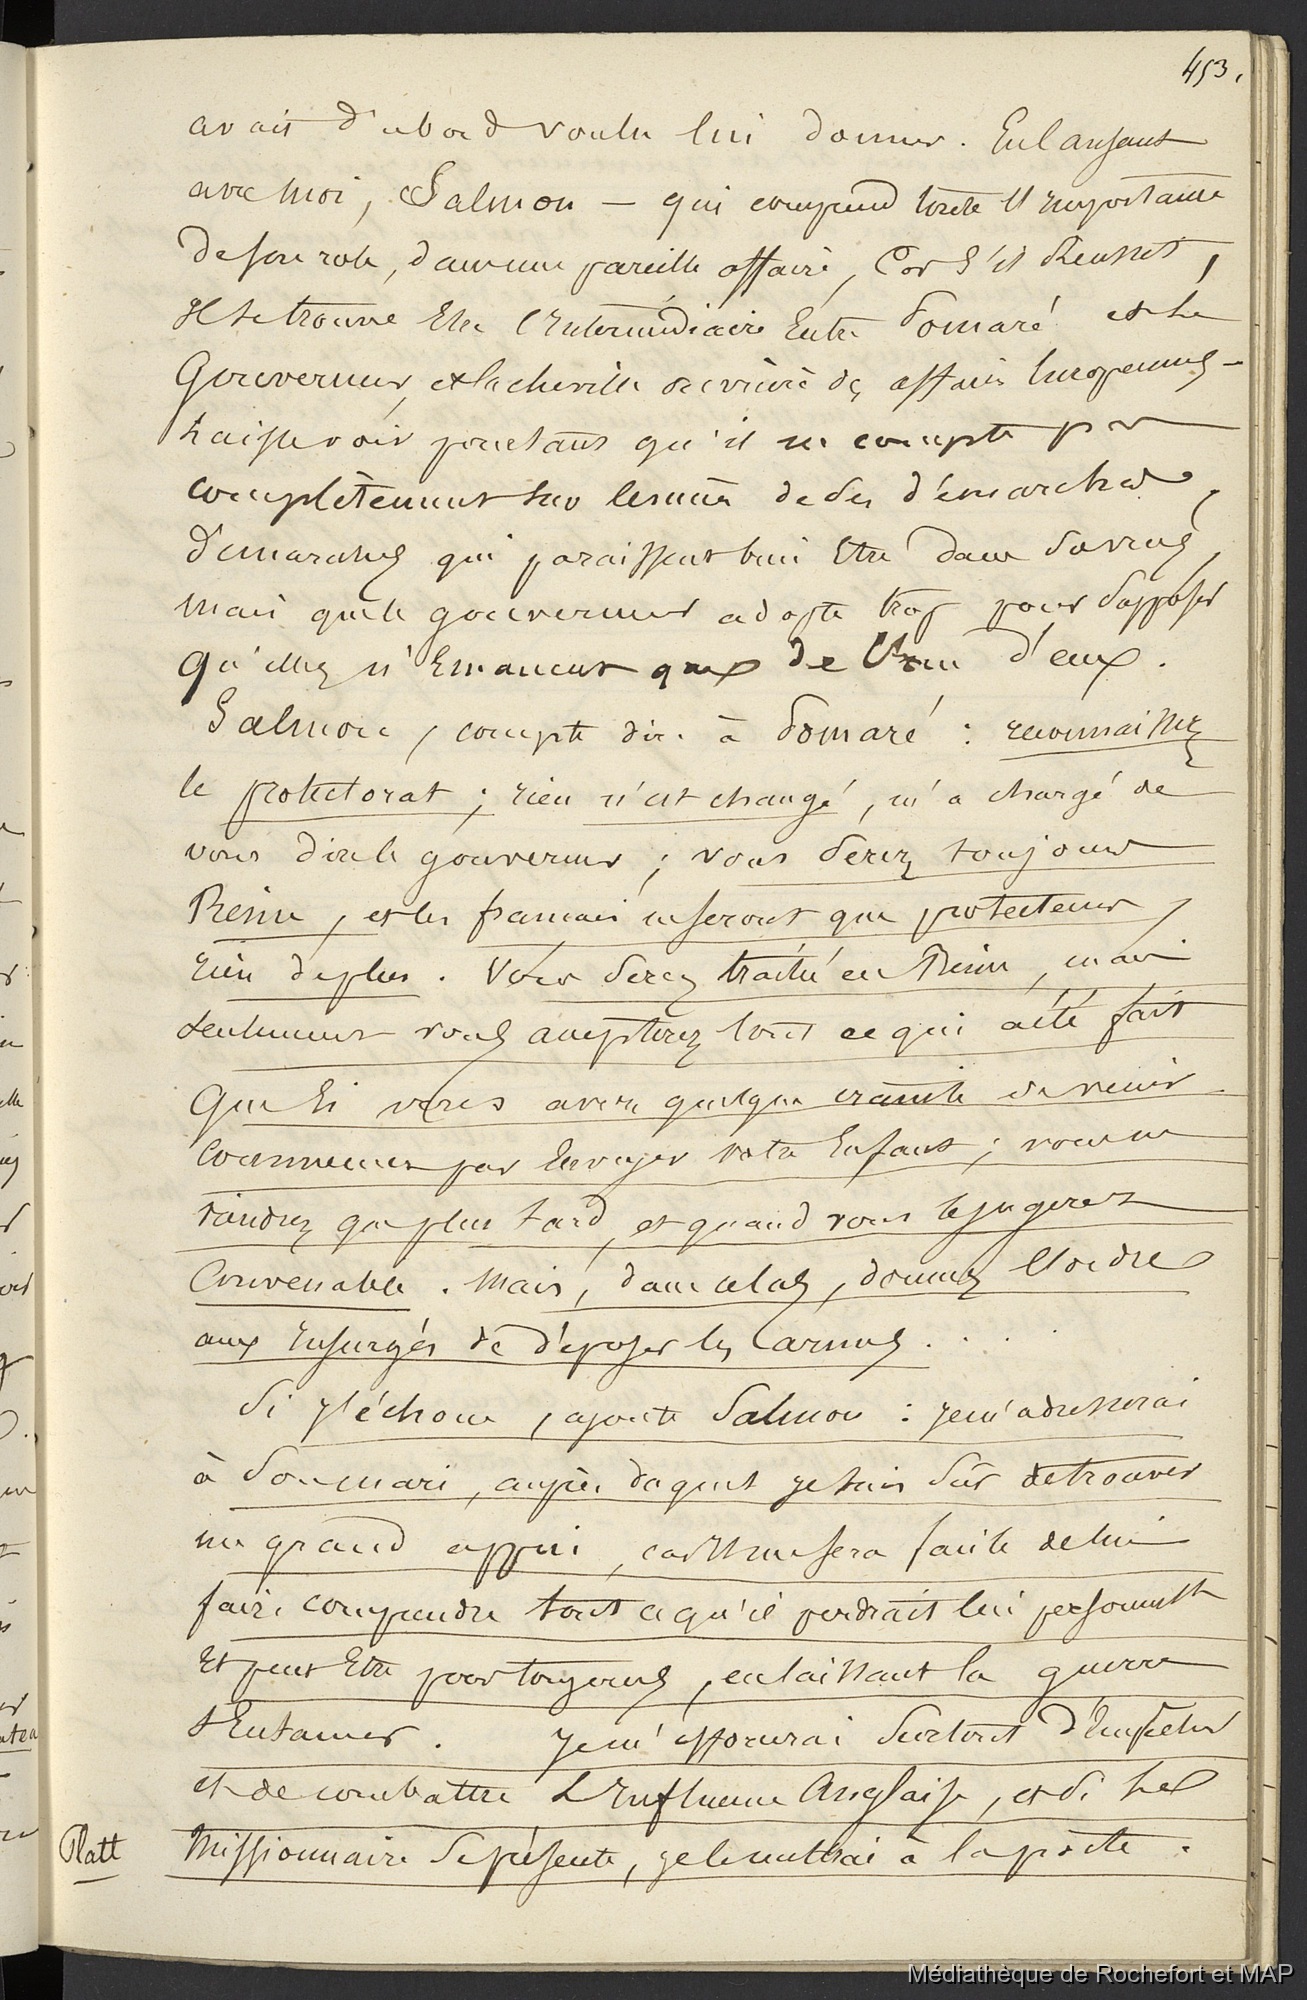 453.
avait d'abord voulu lui donner. En causant
avec moi, Salmon — qui comprend toute l'Importance
de son role, dans une pareille affaire, Car S'il Réussit,
Il se trouve Etre l'Intermédiaire Entre Pomaré et le
Gouverneur, et la cheville ouvrière des affaires Européennes —
laisse voir pourtant qu'il ne compte pas
complètement sur le succès de ses démarches,
démarches qui paraissent bien Etre dans ses vues,
mais que le gouverneur adopte trop pour Supposer
qu'elles n'Emanent que de l'un d'eux.
Salmon, compte dire à Pomaré : reconnaissez
le protectorat ; rien n'est changé, m'a chargé de
vous dire le gouverneur ; vous Serez toujours
Reine, et les francais ne seront que protecteurs,
rien de plus. Vous Serez traitée en Reine, mais
seulement vous accepterez tout ce qui a été fait
Que Si vous avez quelque crainte de venir
Commencez par Envoyer votre Enfant ; vous ne
viendrez que plus tard, et quand vous le jugerez
Convenable. Mais, dans ce cas, donnez l'ordre
aux Insurgés de déposer les armes. . . . .
Si J'échoue, ajoute Salmon : je m'adresserai
à Son mari, auprès duquel je suis Sûr de trouver
un grand appui, car Il me sera facile de lui
faire comprendre tout ce qu'il perdrait lui personnellt
Et peut Etre pour toujours, en laissant la guerre
s'Entamer. Je m'efforcerai Surtout d'Empêcher
et de combattre L'Influence Anglaise, et Si le
Platt
Missionnaire Se présente, je le mettrai à la porte.
Médiathèque de Rochefort et MAP